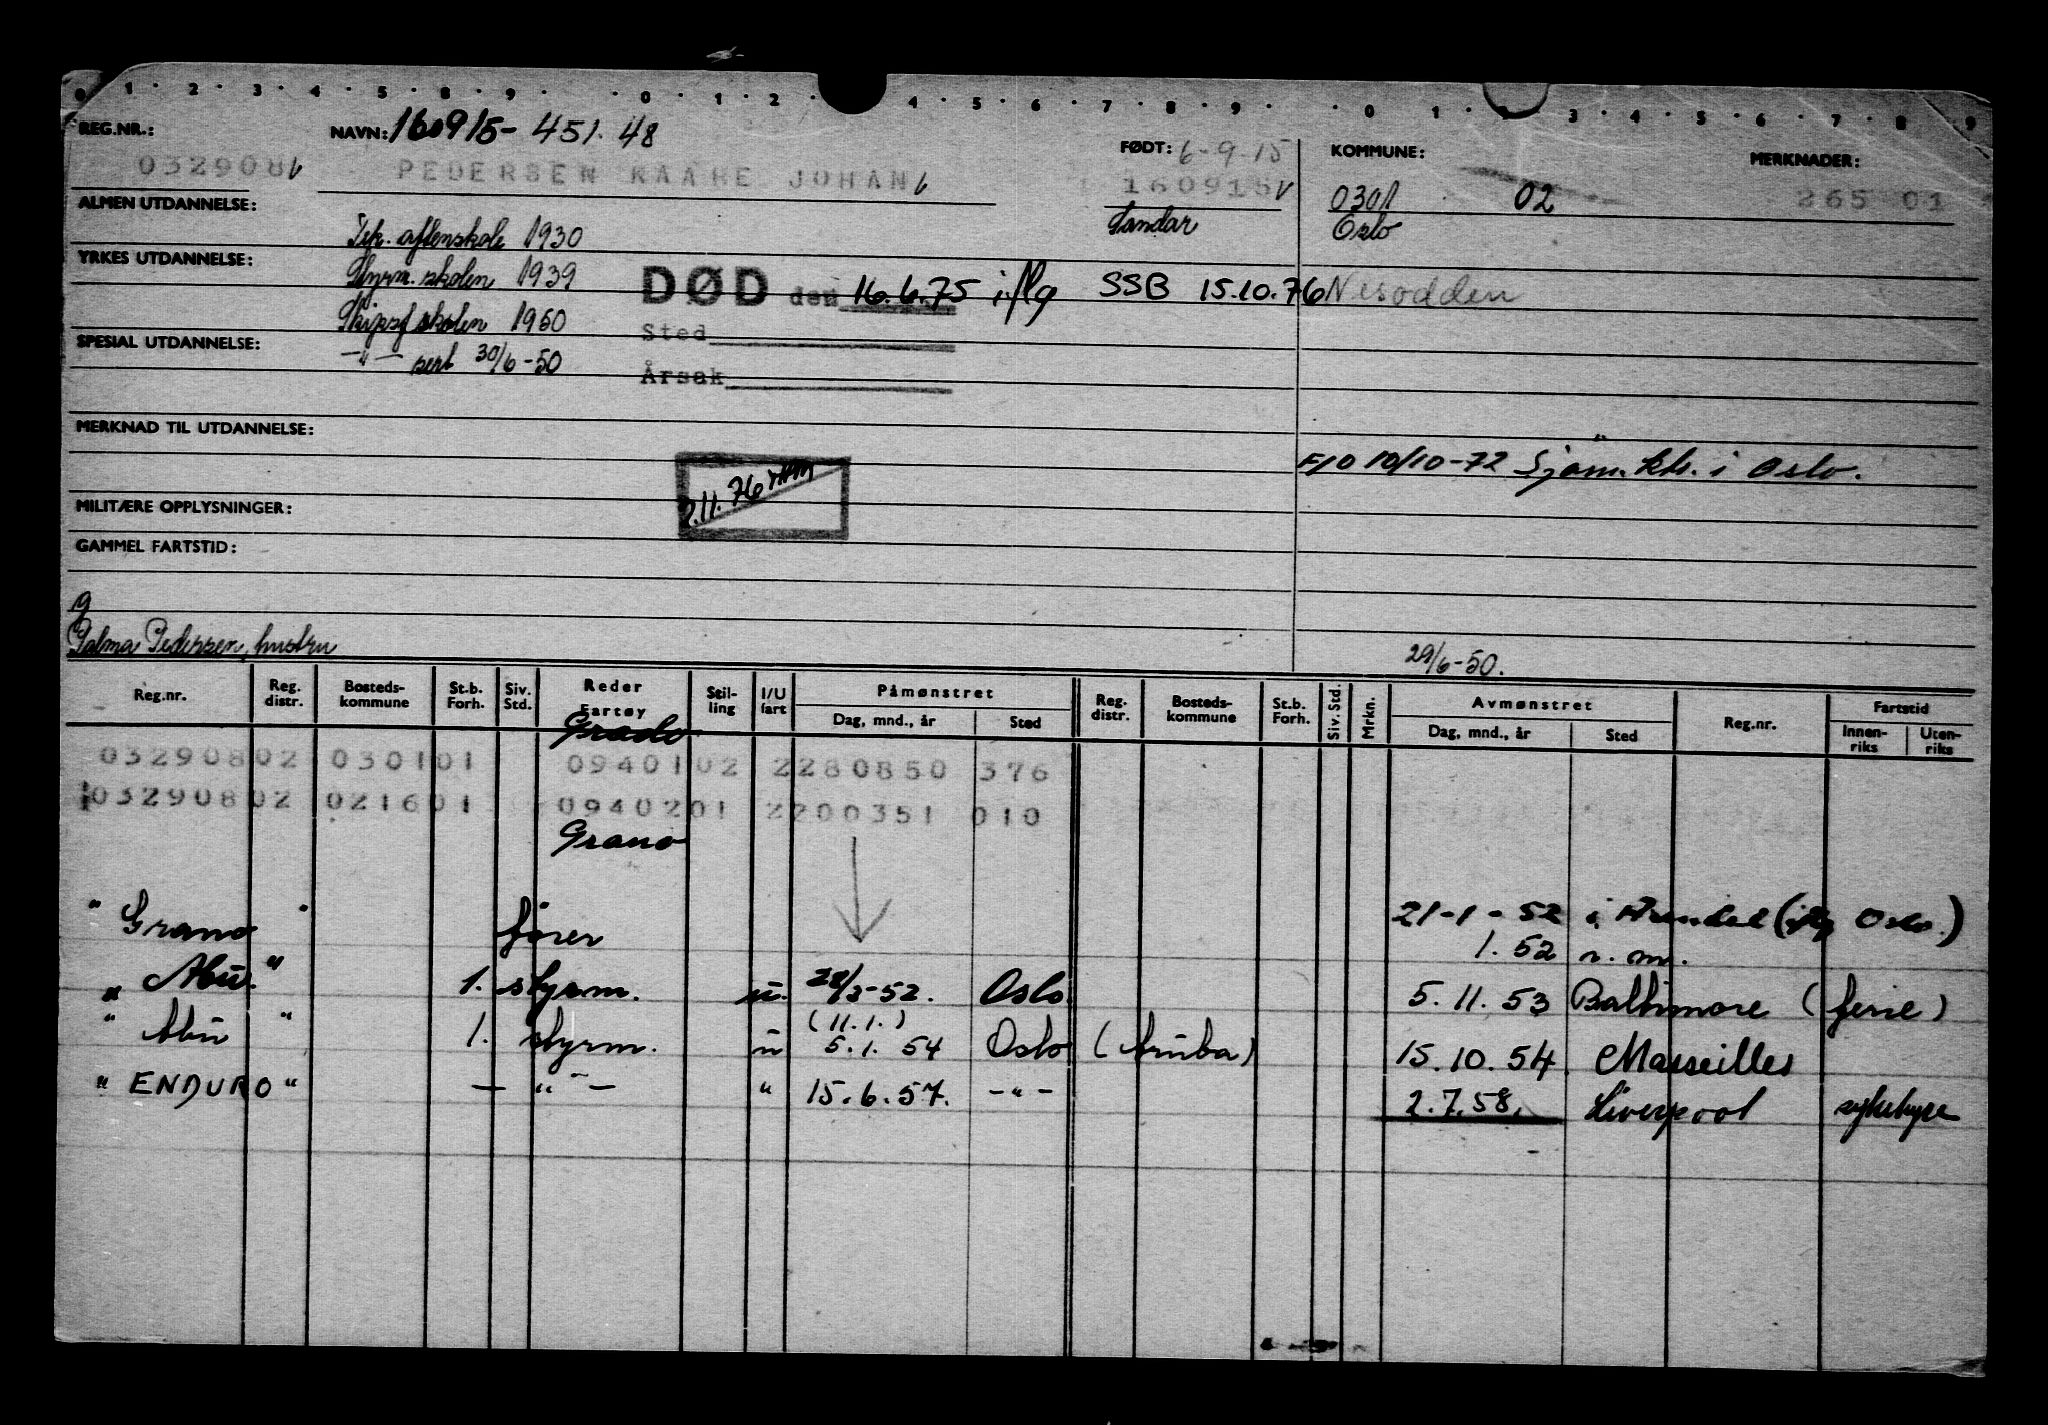 0 · 1 · 2 · 3 · 4 · 5 · 8 · 9 · · 0 · 1 · 2 · 4 · 5 · 6 · 7 · 8 · 9 · · 0 · 1 · 3 · 4 · 5 · 6 · 7 · 8 · 9
REG.NR.: NAVN: 160915- 451. 48 FØDT: 6-9-15 KOMMUNE: MERKNADER:
0329086 PEDERSEN KAARE JOHAN 160915 0301 02 265 01
ALMEN UTDANNELSE: Sandar Oslo
Tek. aftenskole 1930
YRKES UTDANNELSE: Styrm. skolen 1939 DØD den 16.6.75 iflg SSB 15.10.76 Nesodden
Skipsf skolen 1950 Sted
SPESIAL UTDANNELSE: —"— sert 30/6-50
Årsak
MERKNAD TIL UTDANNELSE:
F/O 10/10-72 Sjøm.ktr. i Oslo.
2.11.76
MILITÆRE OPPLYSNINGER:
GAMMEL FARTSTID:
g
Palma Pedersen, hustru 29/6-50.
Reg.nr. Reg. distr. Bosteds- kommune St.b. Forh. Siv. Std. Reder Fartøy Stil- ling I/U fart Påmønstret Dag, mnd., år Sted Reg. distr. Bosteds- kommune St.b. Forh. Siv. Std. Mrkn. Avmønstret Dag, mnd., år Sted Reg.nr. Fartstid Innen- riks Uten- riks
Grado
03290802 030101 0940102 2280850 376
03290802 021601 0940201 2200351 010
Grano
" Grano " fører 21-1-52 i Arendal (iflg Oslo.)
1.52 n.m.
" Abu. " 1. styrm. u. 28/3-52. Oslo. 5.11.53 Baltimore (ferie)
(11.1.)
" Abu " 1. styrm. u 5.1.54 Oslo (Aruba) 15.10.54 Marseilles
" ENDURO " — " — " 15.6.57. -"- 2.7.58. Liverpool sykehyre